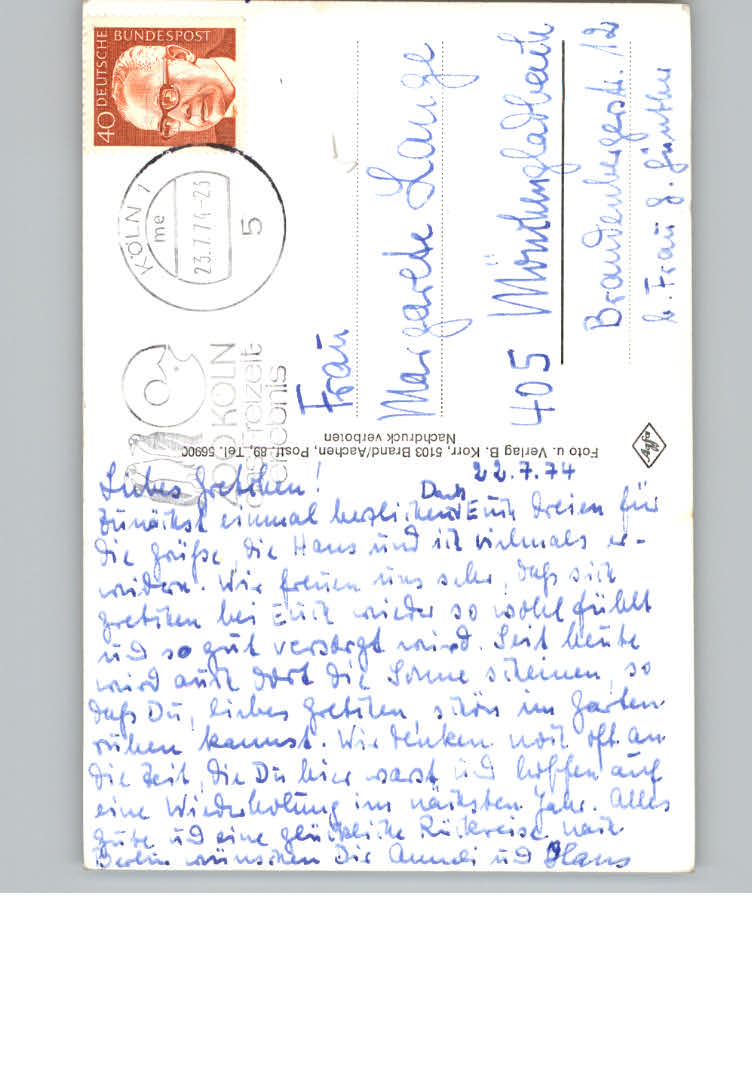 DEUTSCHE BUNDESPOST
40
KÖLN 1
me
23.7.74-23
5
ZOO KÖLN
das Freizeit
erlebnis
Frau
Margarete Lange
405 Mönchengladbach
Brandenbergerstr. 12
b. Frau G. Günther
Foto u. Verlag B. Korr, 5103 Brand/Aachen, Postf. 89, Tel. 56900
Nachdruck verboten
Agfa
22.7.74
Liebes Gretchen!
Zunächst einmal herzlichen Dank Euch dreien für
die Grüße, die Hans und ich vielmals er-
widern. Wir freuen uns sehr, daß sich
Gretchen bei Euch wieder so wohl fühlt
und so gut versorgt wird. Seit heute
wird auch dort die Sonne scheinen, so
daß Du, liebes Gretchen, schön im Garten
ruhen kannst. Wir denken noch oft an
die Zeit, die Du hier warst und hoffen auf
eine Wiederholung im nächsten Jahr. Alles
Gute und eine glückliche Rückreise nach
Berlin wünschen Dir Annedi und Hans